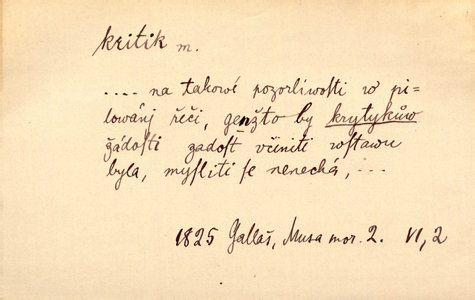 kritik m.
.... na takowé pozorliwosti w pi=
lowánj řeči, genžto by krytykůw
žádosti zadosť včiniti wstawu
byla, mysliti se nenechá, ...
1825 Gallaš, Musa mor. 2. VI, 2